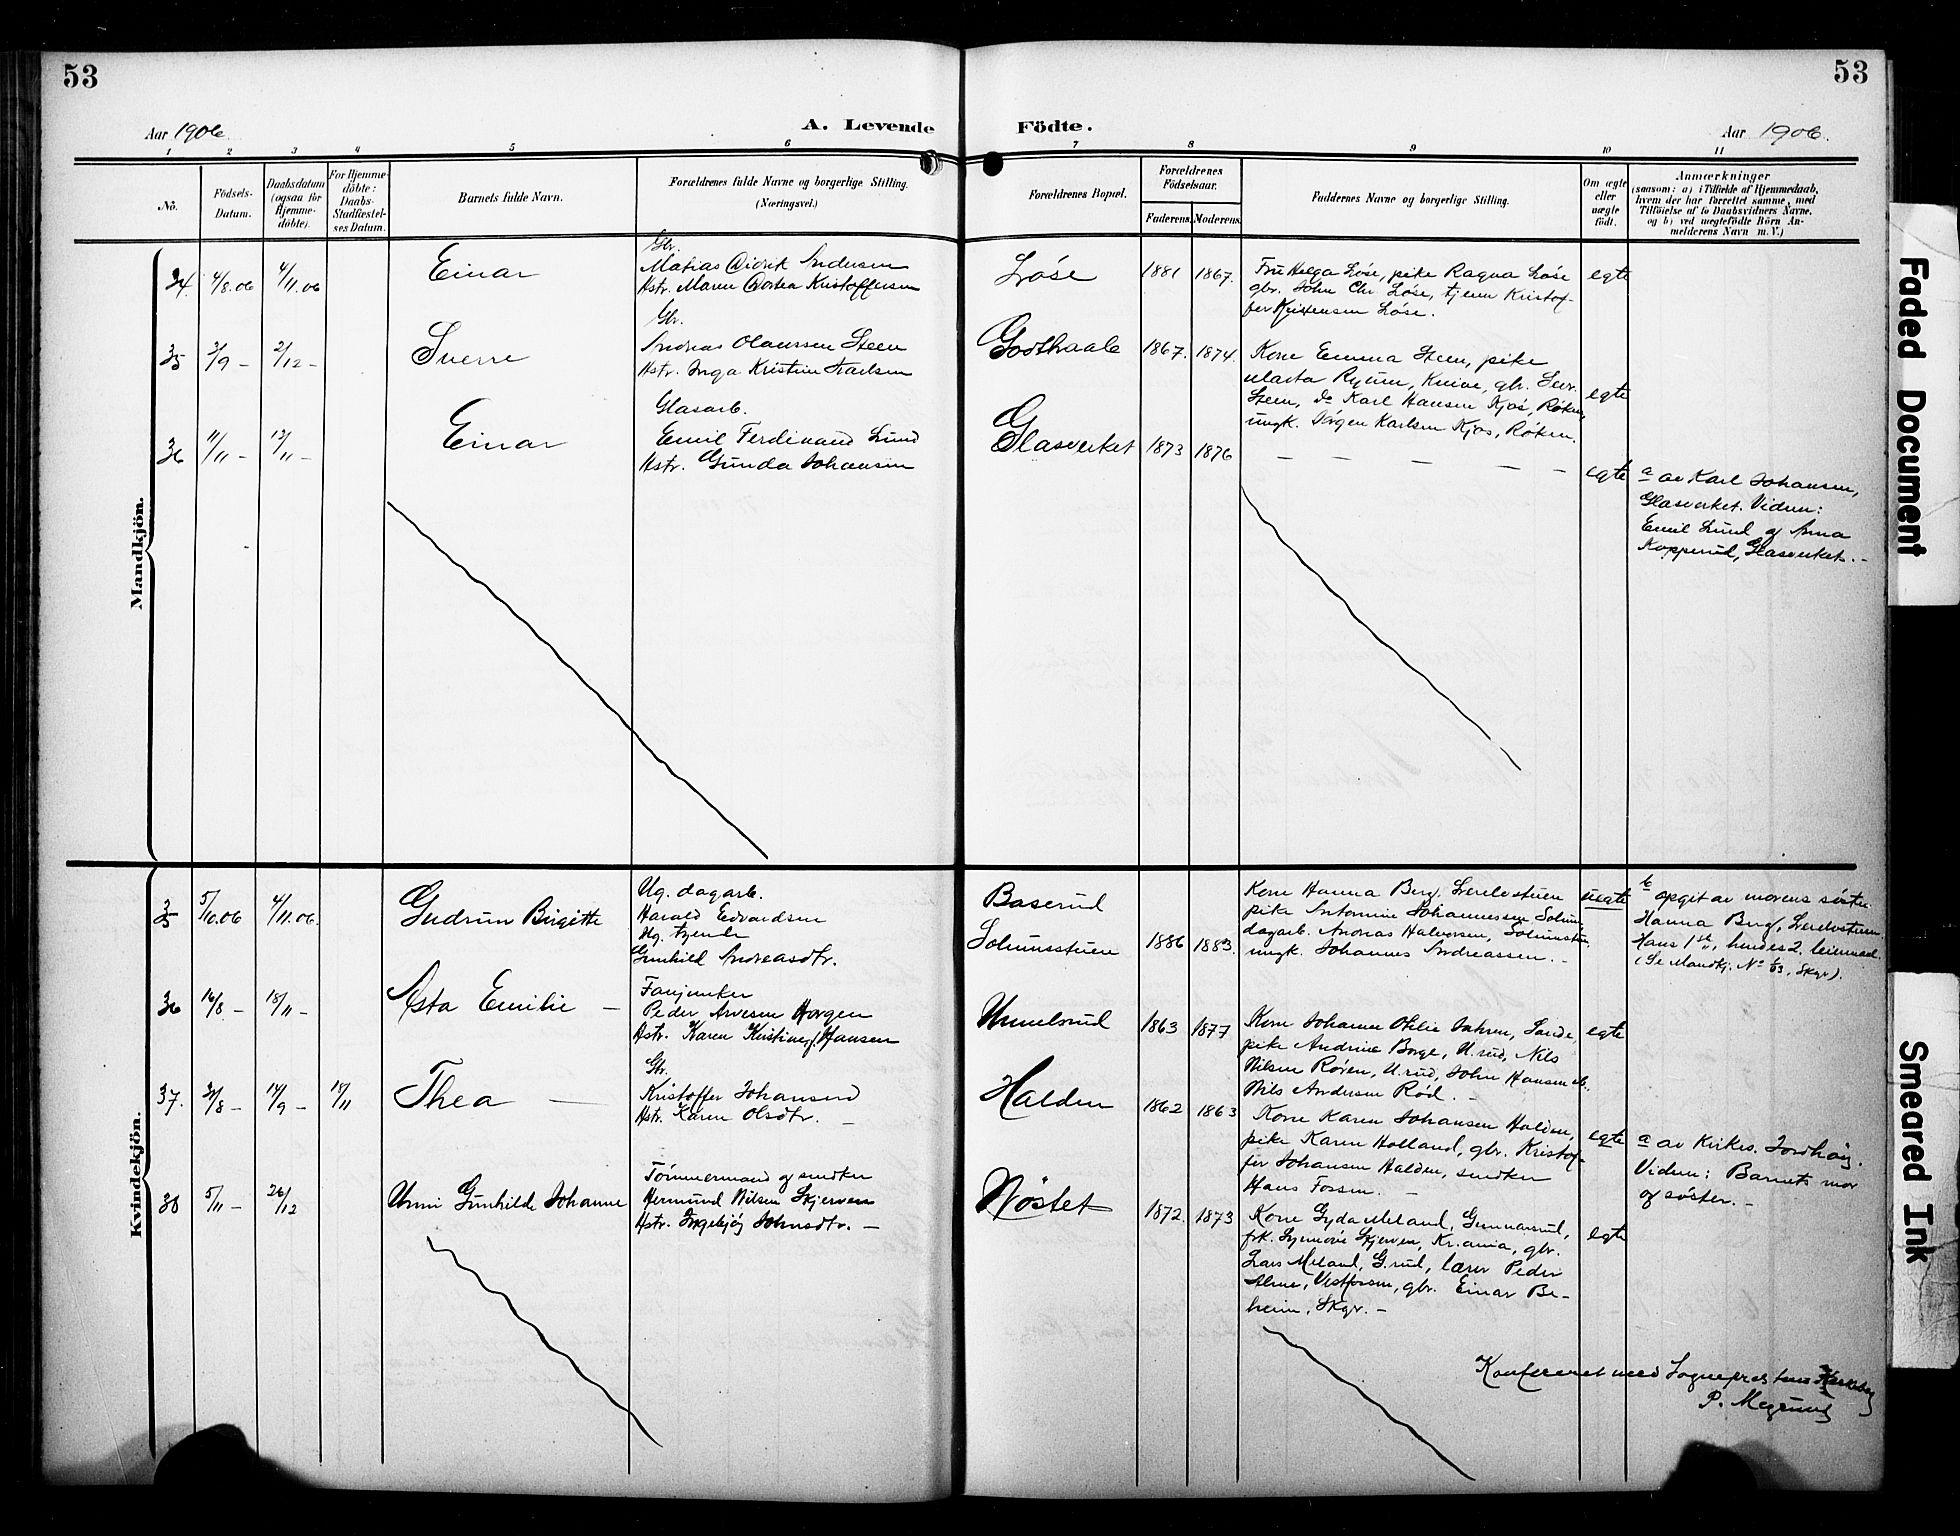 53
53
Aar 1906
A. Levende
Födte.
Aar 1906.
1
2
3
4
5
6
7
8
9
10
11
No.
Födsels-
Datum.
Daabsdatum
(ogsaa for
Hjemme-
döbte).
For Hjemme-
döbte:
Daabs-
Stadfæstel-
ses Datum.
Barnets fulde Navn.
Forældrenes fulde Navne og borgerlige Stilling.
(Næringsvei.)
Forældrenes Bopæl.
Forældrenes
Födselsaar.
Faderens.
Moderens.
Faddernes Navne og borgerlige Stilling.
Om ægte
eller
uægte
födt.
Anmærkninger
(saasom: a) i Tilfælde af Hjemmedaab,
hvem der har forrettet samme, med
Tilföielse af to Daabsvidners Navne,
og b) ved uægtefödte Börn An-
melderens Navn m. V.)
Mandkjön.
34.
4/8.06
4/11.06
Einar
Gbr.
Matias Didrik Andersen
Hstr. Maren Dortea Kristoffersen
Løse
1881
1867.
Fru Helga Løse, pike Ragna Løse
gbr. John Chr. Løse, tjener Kristof-
fer Kristensen Løse.
egte
35
3/9 -
2/12 -
Sverre
Gbr.
Andreas Olaussen Steen
Hstr. Inga Kristine Karlsen
Godthaab
1867.
1874.
Kone Emma Steen, pike
Marta Ryum, Knive, gbr. Sev.
Steen, do Karl Hansen Kjøs, Røken,
ungk. Jørgen Karlsen Kjøs, Røken.
egte
36
11/11 -
12/11 -
Einar
Glasarb.
Emil Ferdinand Lund
Hstr. Gunda Johansen
Glasverket
1873
1876
- - - - -
egte
a av Karl Johansen,
Glasverket. Vidner:
Emil Lund og Anna
Kopperud, Glasverket. -
Kvindekjön.
35
5/10.06
4/11.06.
Gudrun Birgitte
Ug. dagarb.
Harald Edvardsen
Ug. tjende
Gunhild Andreasdtr.
Baserud
Solumsstuen
1886
1883.
Kone Hanna Berg, Lerelvstuen
pike Antonine Johannessen Solum
dagarb. Andreas Halvorsen, Solumstuen,
ungk. Johannes Andreassen. -
uegte
b opgit av morens søster
Hanna Berg, Lerelvstuen.
Hans 1ste, hendes 2. leiermaal.
(Se Mandkj. No 1/03, Skgr).
36
16/8 -
18/11 -
Asta Emilie -
Fanjunker
Peder Arvesen Horgen
Hstr. Karen Kristine f. Hansen
Ummelsrud
1863
1877
Kone Johanne Otilie Sahren, Sande,
pike Andrine Borge, U.rud, Nils
Nilsen Røren, U.rud, John Hansen
Nils Andersen Rød. -
egte
37.
/8 -
14/9 -
18/11
Thea -
Gbr.
Kristoffer Johansen
Hstr. Karen Olsdtr. -
Halden
1862
1863
Kone Karen Johansen Halden,
pike Karen Holland, gbr. Kristof-
fer Johansen Halden, smedken
Hans Fossen. -
egte
a av Kirkes. Jordhøy.
Vidner: Barnets mor
og søster. -
38
5/11 -
26/12
Unni Gunhilde Johanne
Tømmermand og smedken
Hermund Nilsen Skjerven
Hstr. Ingebjøg Johnsdtr. -
Nøstet
1872.
1873
Kone Gyda Meland, Gunnarsrud,
frk. Synnøve Skjerven, Kr.ania, gbr.
Lars Meland, G.rud, lærer Peder
Alme, Vestfossen, gbr. Einar Be-
heim, Skgr. -
egte
Konfereret med Sogneprestens
P. Megrund